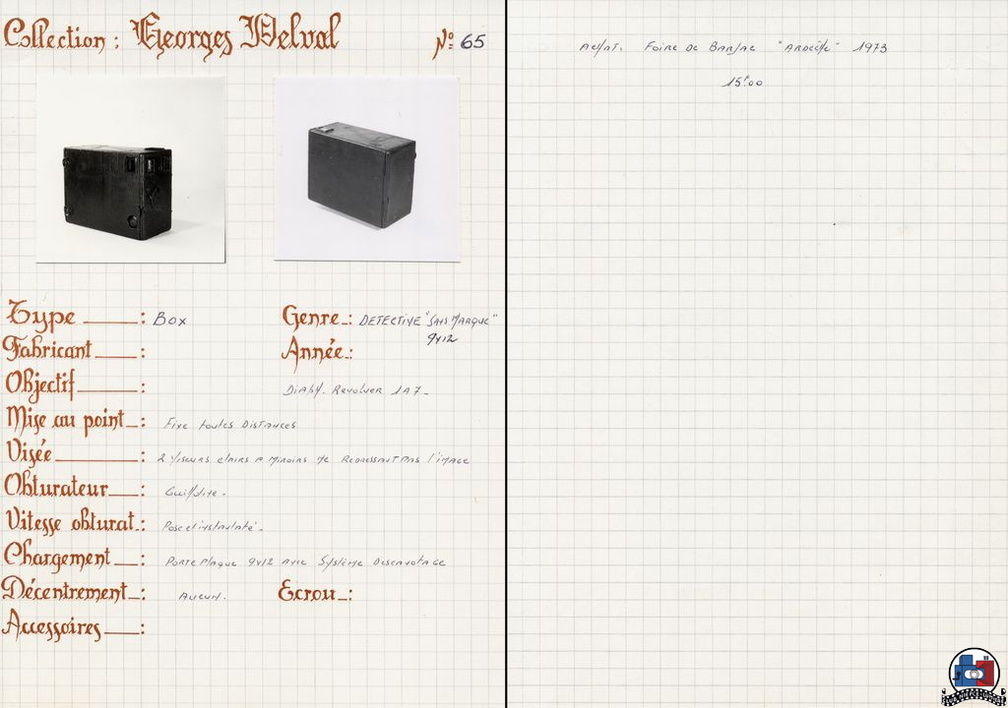 Collection : Georges Delval
Nº 65
Type : Box
Genre : DETECTIVE "SANS MARQUE"
9x12
Fabricant :
Année :
Objectif :
Diaph. Revolver 1 A 7 -
Mise au point : Fixe toutes DISTANCES
Visée : 2 Viseurs clairs A Miroirs Ne REDRESSANT PAS l'IMAGE
Obturateur : Guillotine .
Vitesse obturat. : Pose et instantané -
Chargement : PORTE Plaque 9x12 AVEC Système D'escamotage
Décentrement : AUCUN .
Ecrou :
Accessoires :
ACHAT. FOIRE DE BARJAC "ARDÈCHE" 1973
15F00